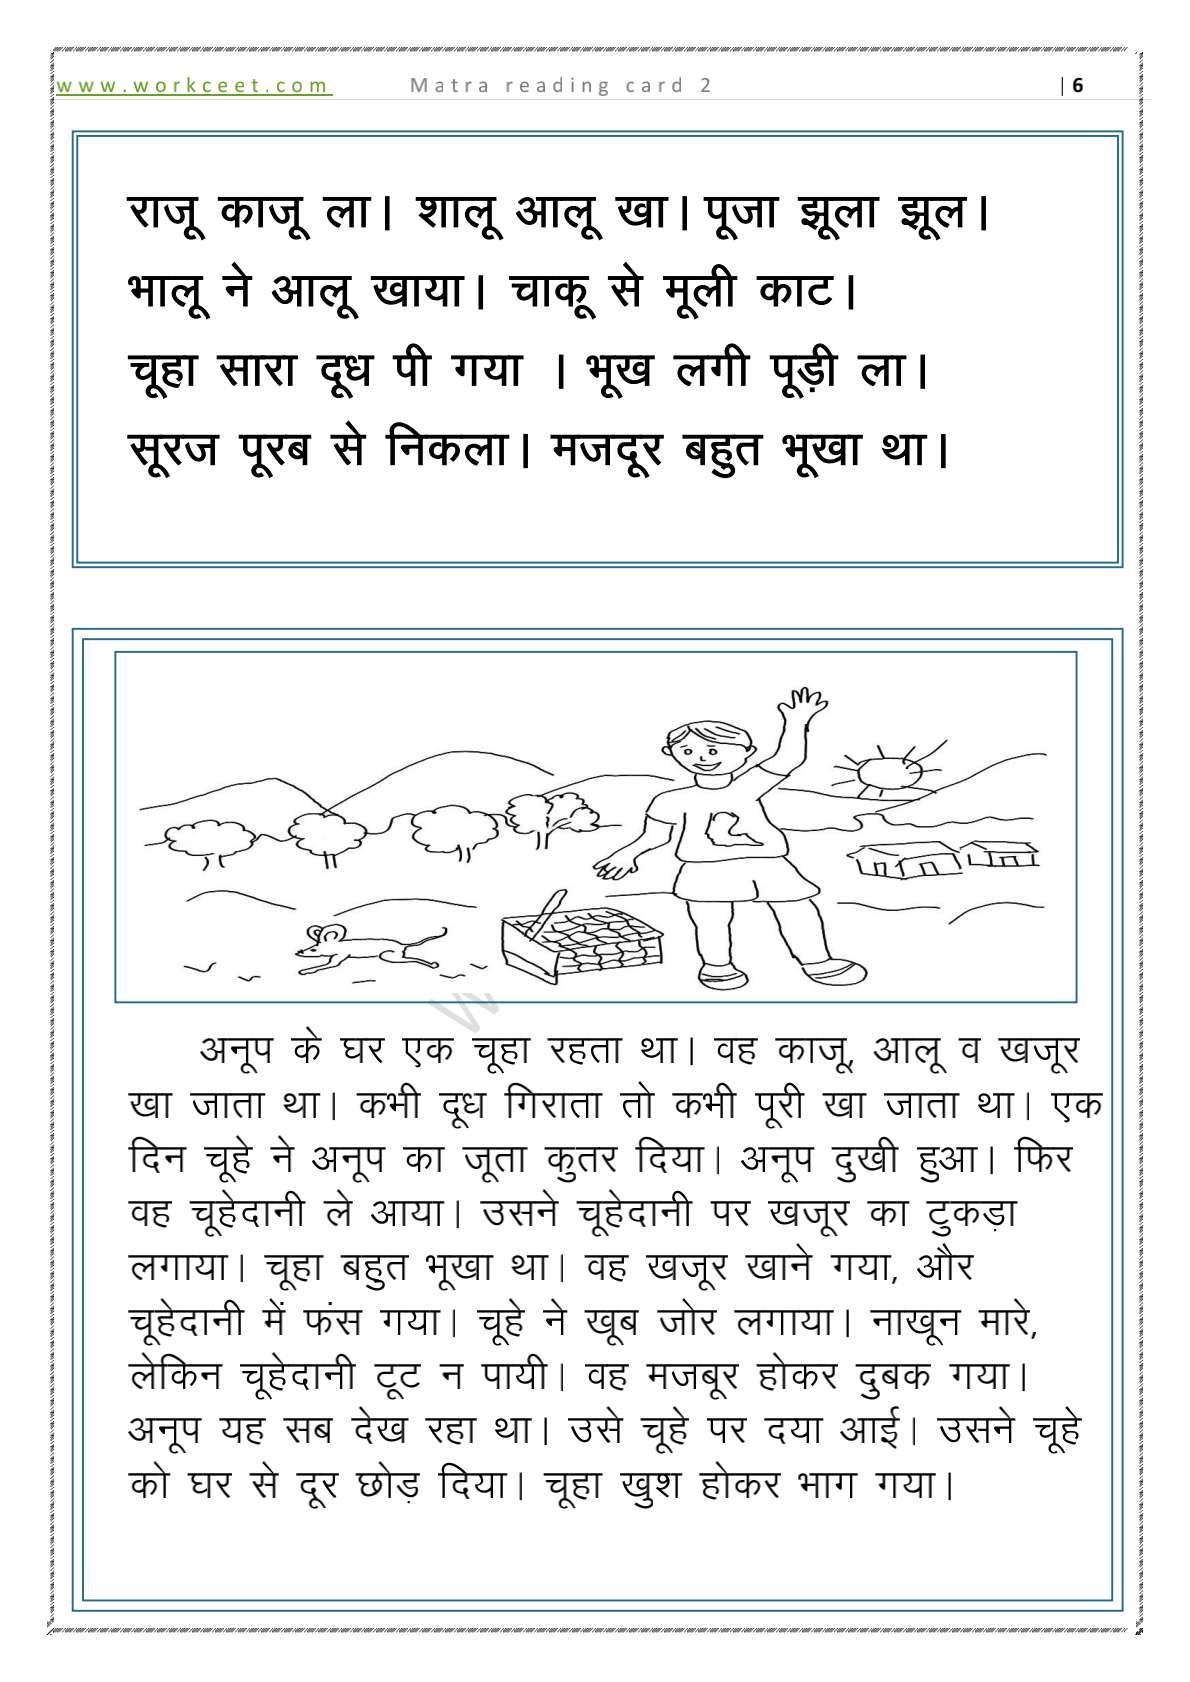 www.workceet.com Matra reading card 2 | 6
राजू काजू ला। शालू आलू खा। पूजा झूला झूल।
भालू ने आलू खाया। चाकू से मूली काट।
चूहा सारा दूध पी गया । भूख लगी पूड़ी ला।
सूरज पूरब से निकला। मजदूर बहुत भूखा था।
अनूप के घर एक चूहा रहता था। वह काजू, आलू व खजूर
खा जाता था। कभी दूध गिराता तो कभी पूरी खा जाता था। एक
दिन चूहे ने अनूप का जूता कुतर दिया। अनूप दुखी हुआ। फिर
वह चूहेदानी ले आया। उसने चूहेदानी पर खजूर का टुकड़ा
लगाया। चूहा बहुत भूखा था। वह खजूर खाने गया, और
चूहेदानी में फंस गया। चूहे ने खूब जोर लगाया। नाखून मारे,
लेकिन चूहेदानी टूट न पायी। वह मजबूर होकर दुबक गया।
अनूप यह सब देख रहा था। उसे चूहे पर दया आई। उसने चूहे
को घर से दूर छोड़ दिया। चूहा खुश होकर भाग गया।